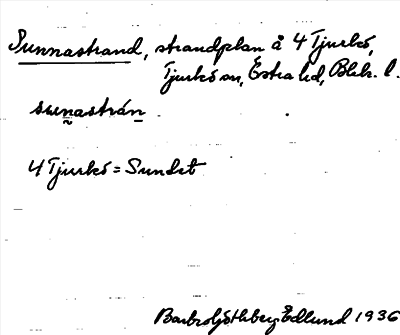 Sunnastrand, strandplan å 4 Tjurkö,
Tjurkö sn, Östra hd, Blek. l.
sunastrán
4 Tjurkö = Sundet
Edlund 1936